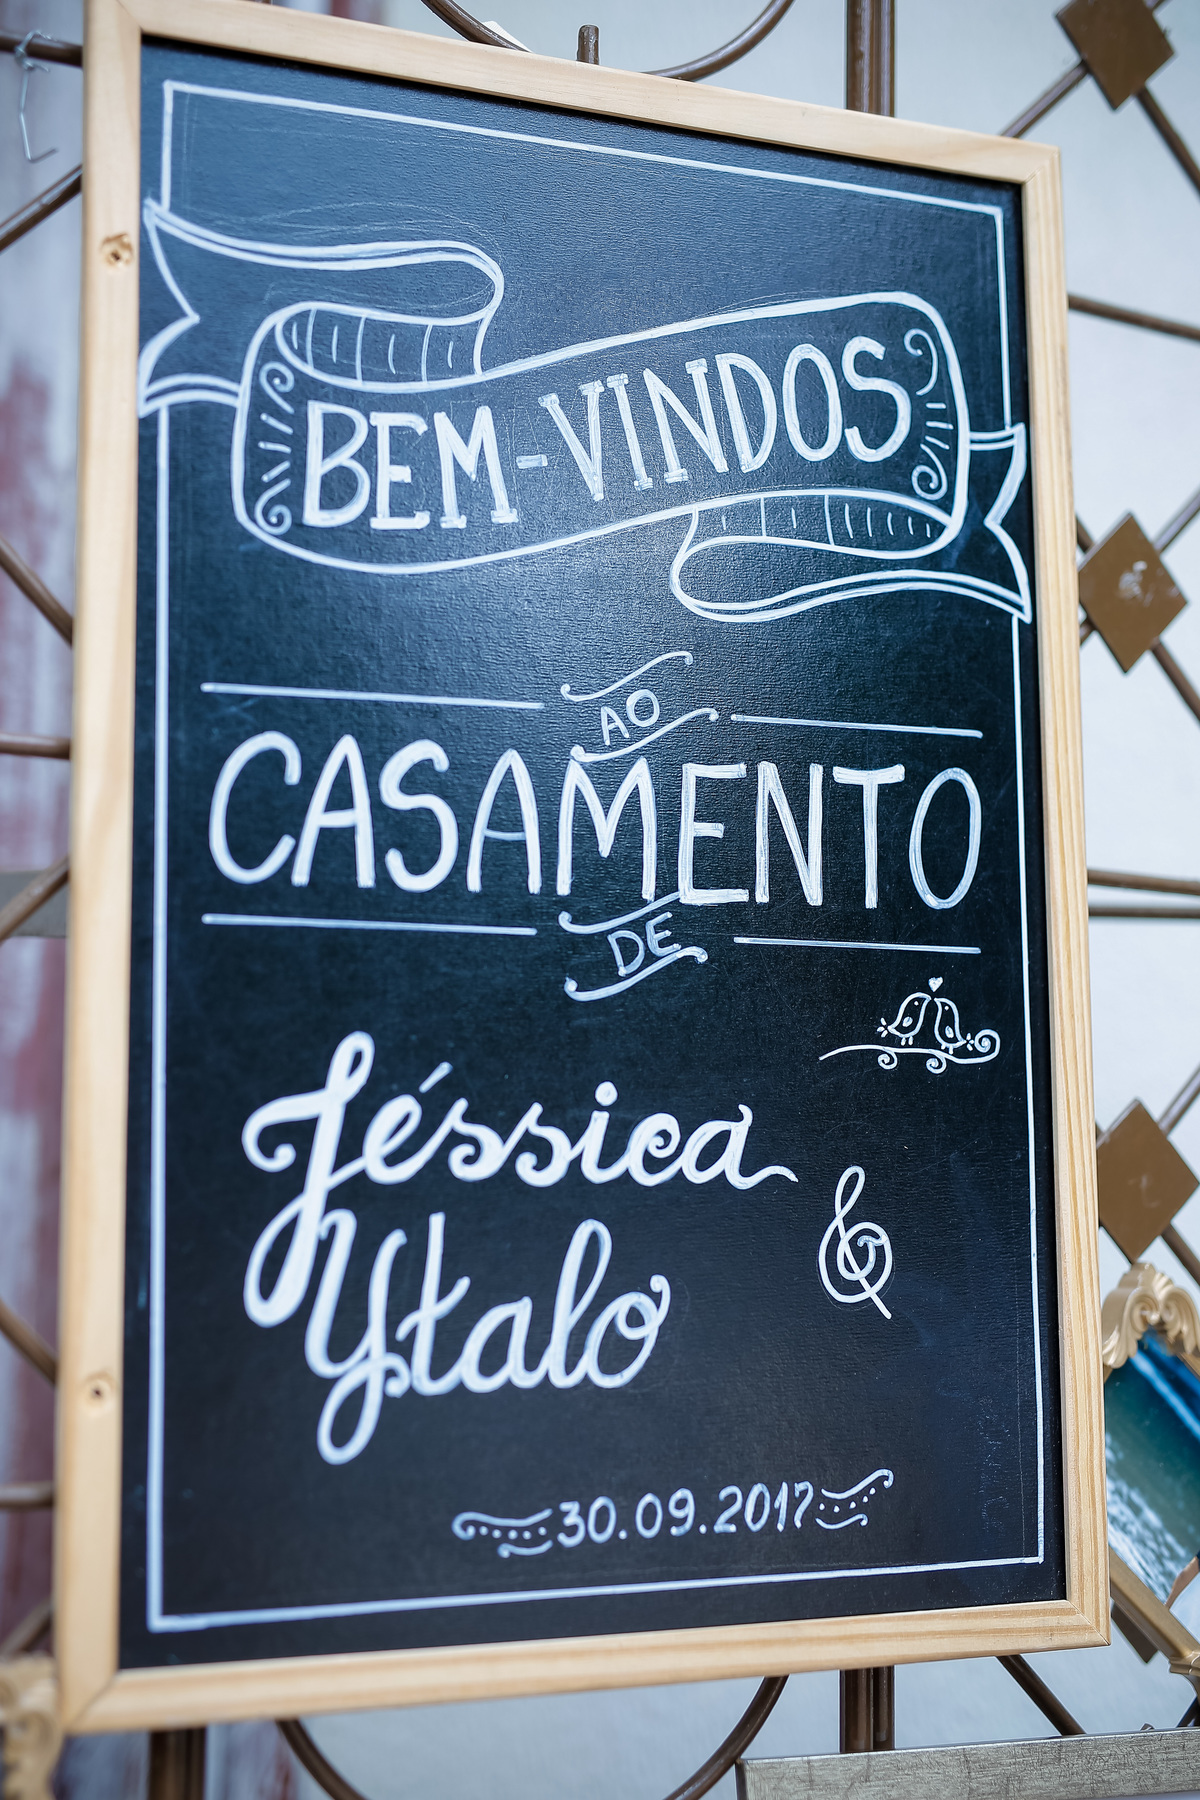 BEM-VINDOS
AO
CASAMENTO
DE
Jéssica
&
Ytalo
30.09.2017